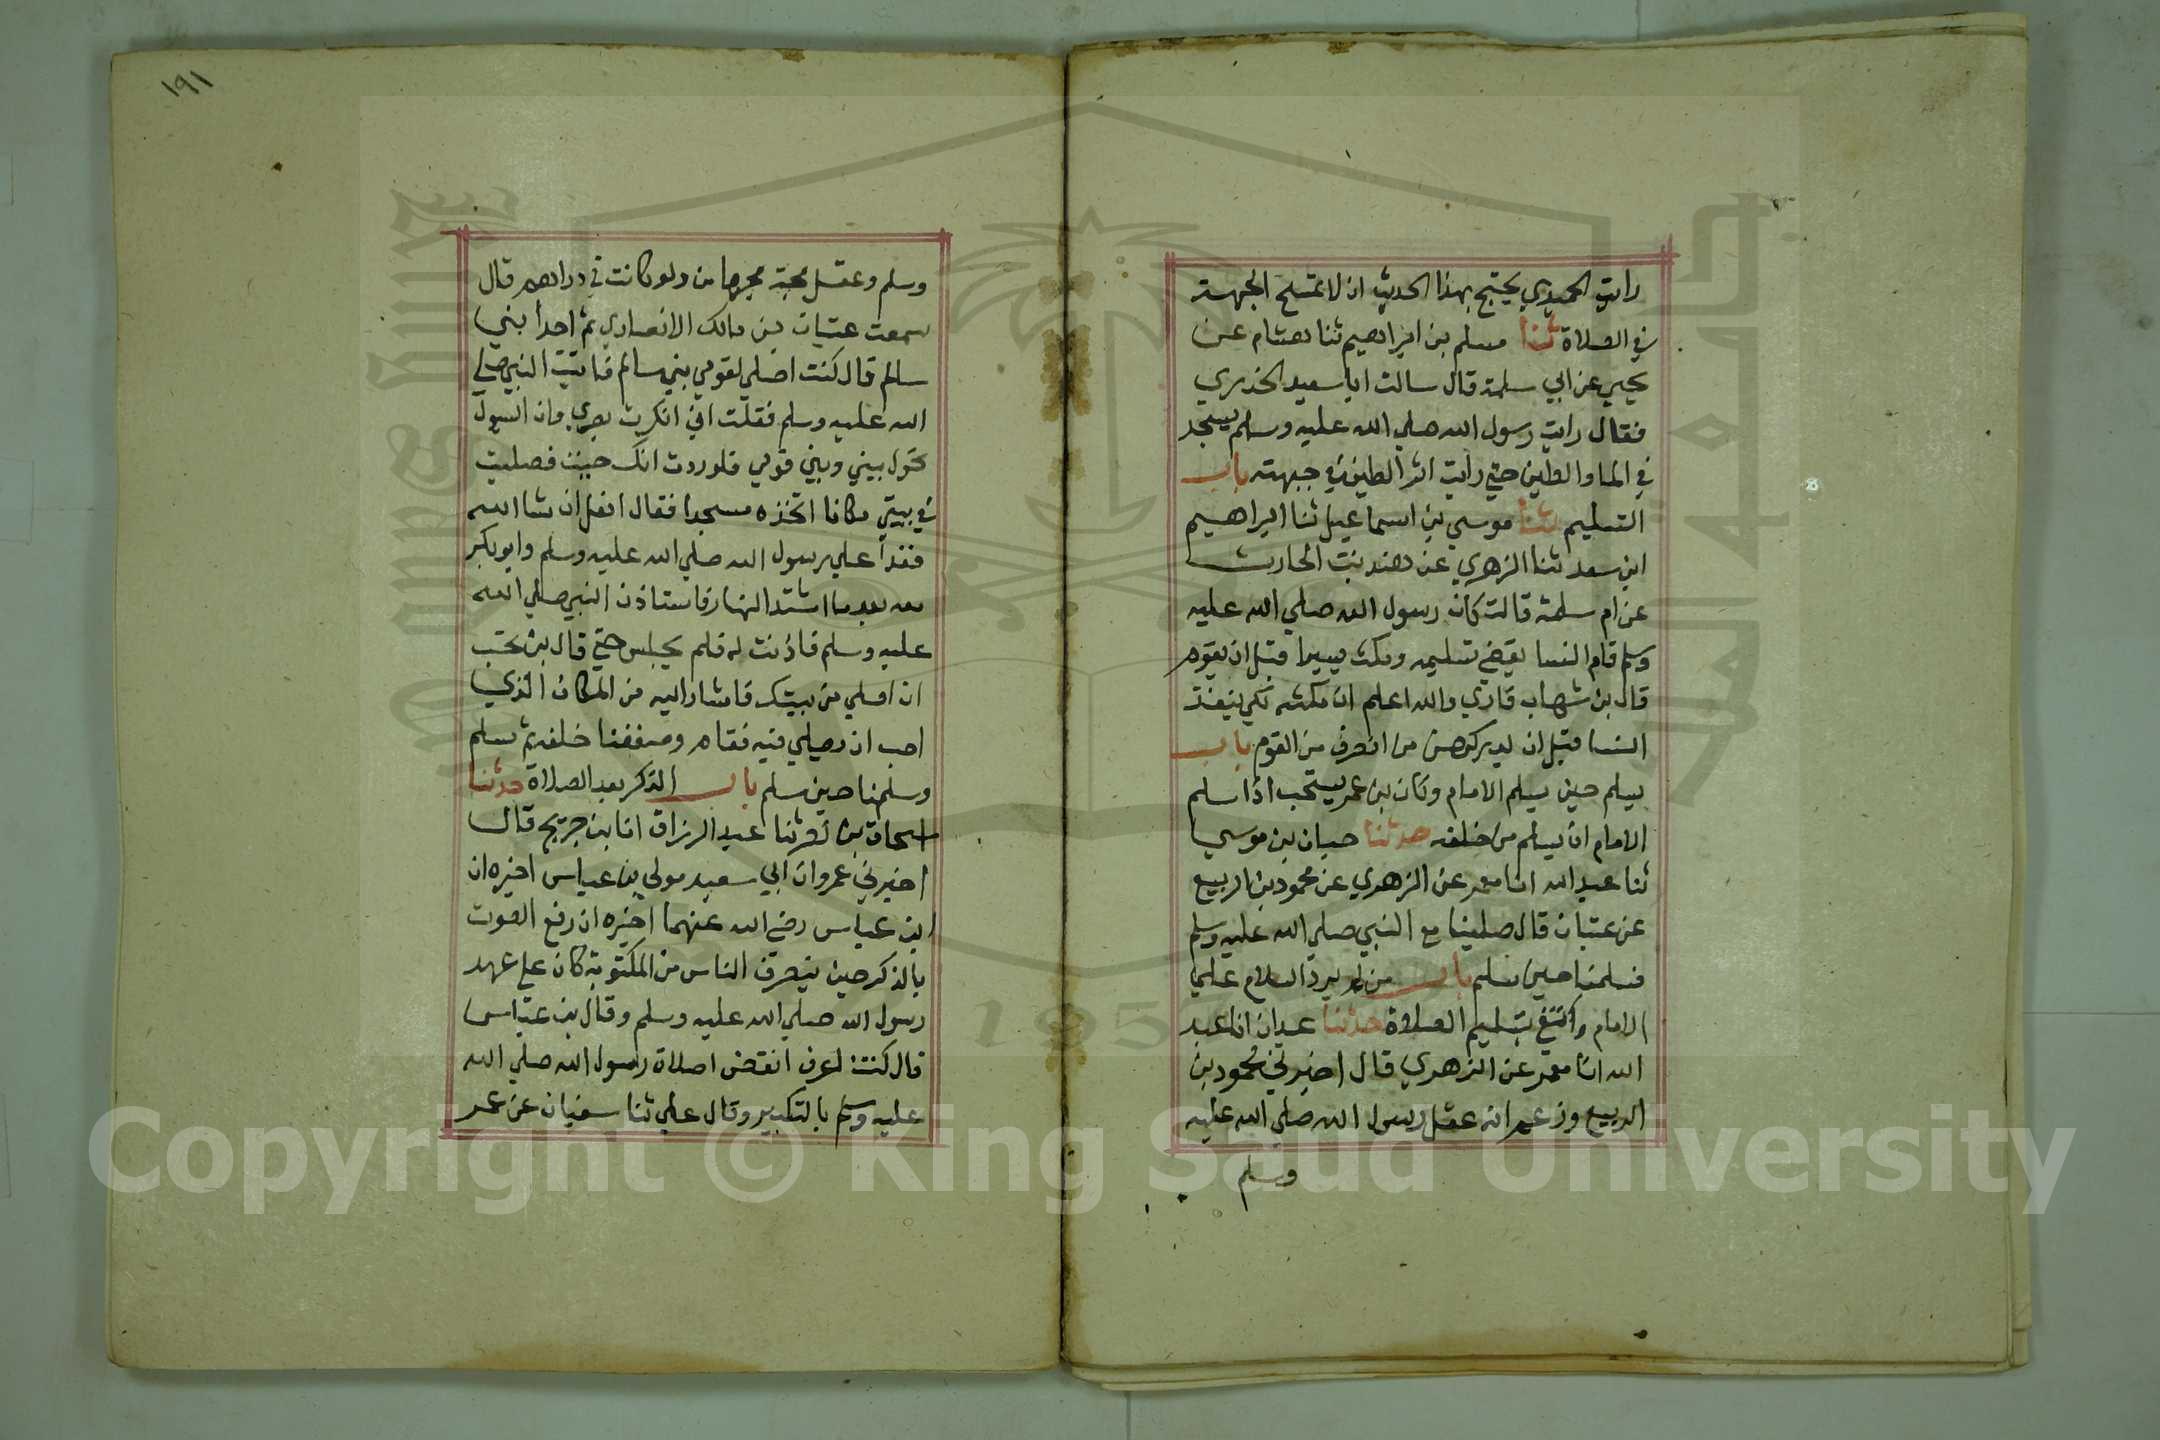 رايت الحميدي يحتج بهذا الحديث ان لا تمسح الجبهة
في الصلاة ثنا مسلم بن ابراهيم ثنا هشام عن
يحيي عن ابي سلمة قال سالت ابا سعيد الخدري
فقال رايت رسول الله صلي الله عليه وسلم يسجد
في الما والطين حتي رايت اثر الطين في جبهته باب
التسليم ثنا موسي بن اسماعيل ثنا ابراهيم
ابن سعد ثنا الزهري عن هند بنت الحارث
عن ام سلمة قالت كان رسول الله صلي الله عليه
وسلم قام النسا يقضي تسليمه ومكث يسيرا قبل ان يقوم
قال بن شهاب فاري والله اعلم ان مكثه لكي ينفذ
النسا قبل ان يدركهن من انصرف من القوم باب
يسلم حين يسلم الامام وكان بن عمر يستحب اذا سلم
الامام ان يسلم من خلفه حدثنا حبان بن موسي
ثنا عبد الله انا معمر عن الزهري عن محمود بن الربيع
عن عتبان قال صلينا مع النبي صلي الله عليه وسلم
فسلمنا حين سلم باب من لم يرد السلام علي
الامام واكتفي بتسليم الصلاة حدثنا عبدان انا عبد
الله انا معمر عن الزهري قال اخبرني محمود بن
الربيع وزعم انه عقل رسول الله صلي الله عليه
وسلم
١٩١
وسلم وعقل مجة مجها من دلو كانت في دارهم قال
سمعت عتبان بن مالك الانصاري ثم احد بني
سالم قال كنت اصلي لقومي بني سالم فاتيت النبي صلي
الله عليه وسلم فقلت اني انكرت بصري وان السيول
تحول بيني وبين قومي فلوددت انك جيت فصليت
في بيتي مكانا اتخذه مسجدا فقال افعل ان شا الله
فغدا علي رسول الله صلي الله عليه وسلم وابو بكر
معه بعد ما اشتد النهار فاستاذن النبي صلي الله
عليه وسلم فاذنت له فلم يجلس حتي قال بن تحب
ان اصلي من بيتك فاشار اليه من المكان الذي
احب ان يصلي فيه فقام وصففنا خلفه ثم سلم
وسلمنا حين سلم باب الذكر بعد الصلاة حدثنا
اسحاق بن نصر ثنا عبد الرزاق انا بن جريج قال
اخبرني عمرو ان ابي سعيد مولي بن عباس اخبره ان
ابن عباس رضي الله عنهما اخبره ان رفع الصوت
بالذكر حين ينصرف الناس من المكتوبة كان علي عهد
رسول الله صلي الله عليه وسلم وقال بن عباس
قال كنت اعرف انقضا صلاة رسول الله صلي الله
عليه وسلم بالتكبير وقال علي ثنا سفيان عن عمر
Copyright © King Saud University